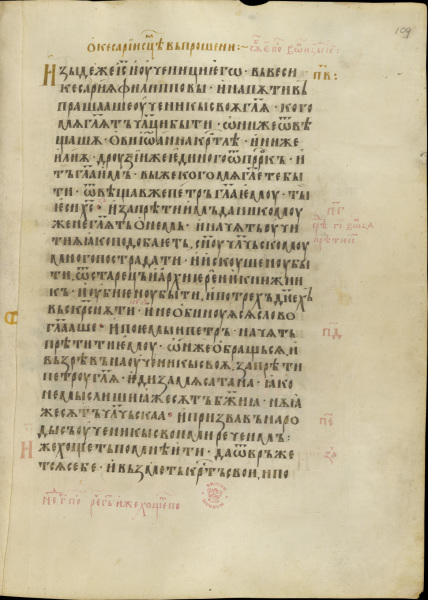 ѡ кесарїисцѣ въпрошени :~
109
Изыде же іс и оученици его · въ веси
кесария филиповы · и на пѫти въ
прашааше оученикы своѫ глѧ · кого
мѧ глѧть члци быти · ѡни же ѿвѣ
щашѫ · ѡви іѡанна крⷭтлѣ · и ини же
илиѫ · дроузии же единого ѿ прⷪркъ · и
тъ гла имъ · вы же кого мѧ глете бы
ти · ѿвѣщав же петръ гла емоу · ты
еси хс · и запрѣти имъ да никомоу
же не глѧть о немь · и начѧть оучи
ти ѧ іако подобаеть, сноу члчьскомоу
много пострадати · и искоушеноу бы
ти, ѿ старець и архиерен и книжни
къ · и оубиеноу быти, и по трехъ дⷩехъ
въскрⷭснѫти · и не обинуѧсѧ слово
глааше · и поемь и петръ · начѧть
прѣтити емоу · ѡн же обращьсѧ, и
възрѣвъ на оученикы своѧ, запрѣти
петроу глѧ · иди за мѧ сатана · іако
не мыслиши іаже сѫть бжиа · нѫ іа
же сѫть члчьскаа · и призвавъ наро
ды съ оученикы своими рече имъ :
иже хощеть по мнѣ ити · да ѿвръже
тсѧ себе · и възметь крⷭтъ свои, и по